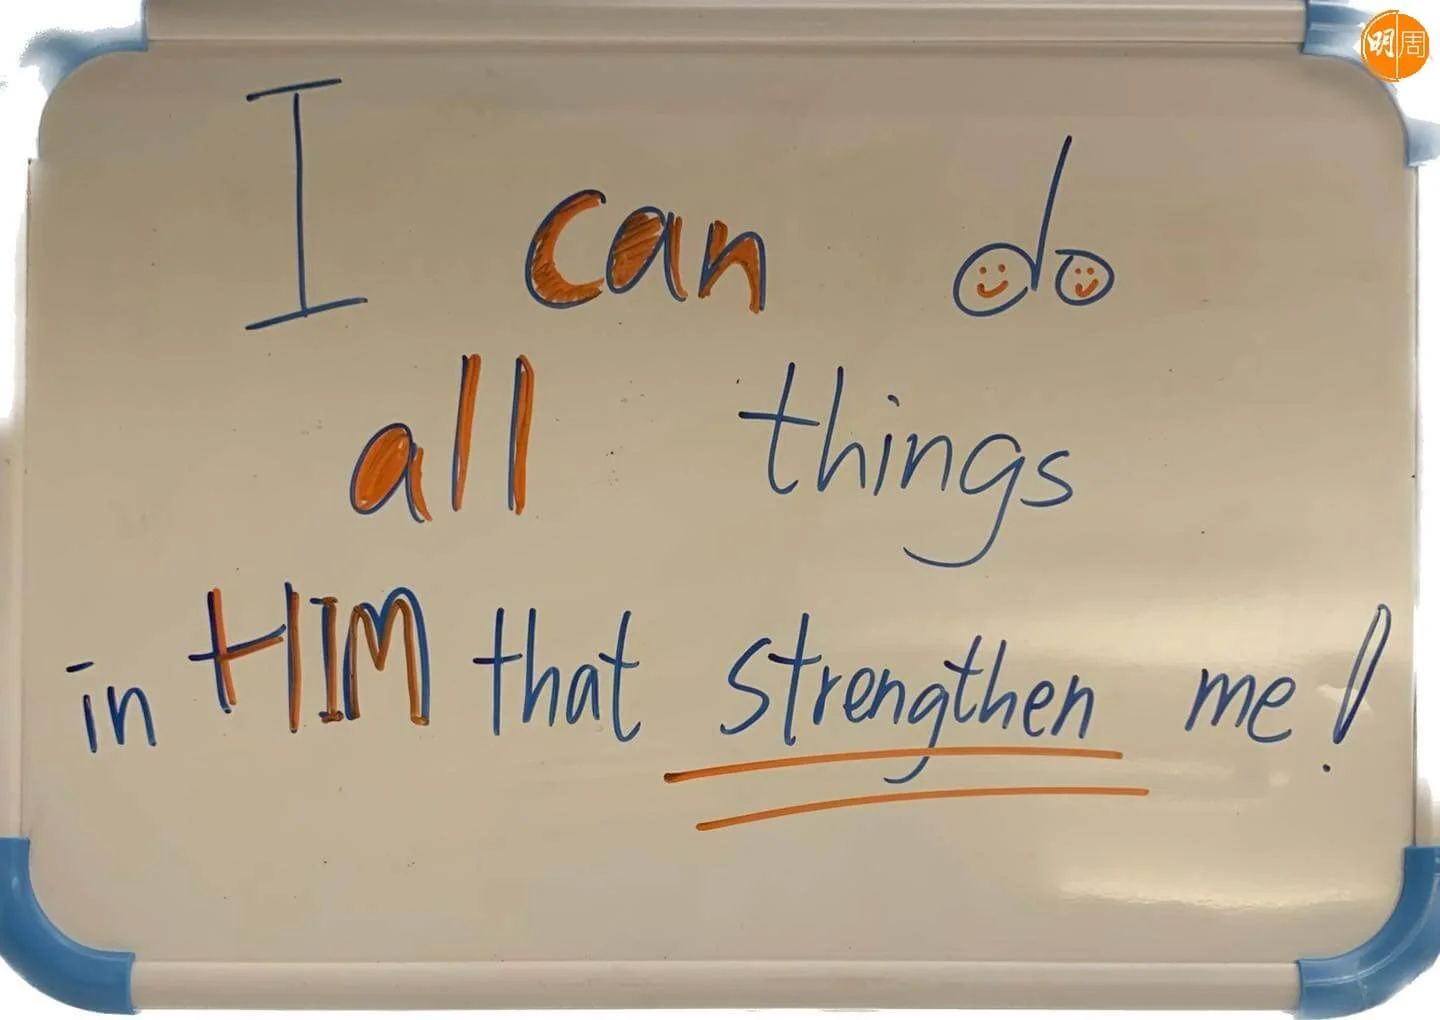 明周
I can do
all things
in HIM that strengthen me!